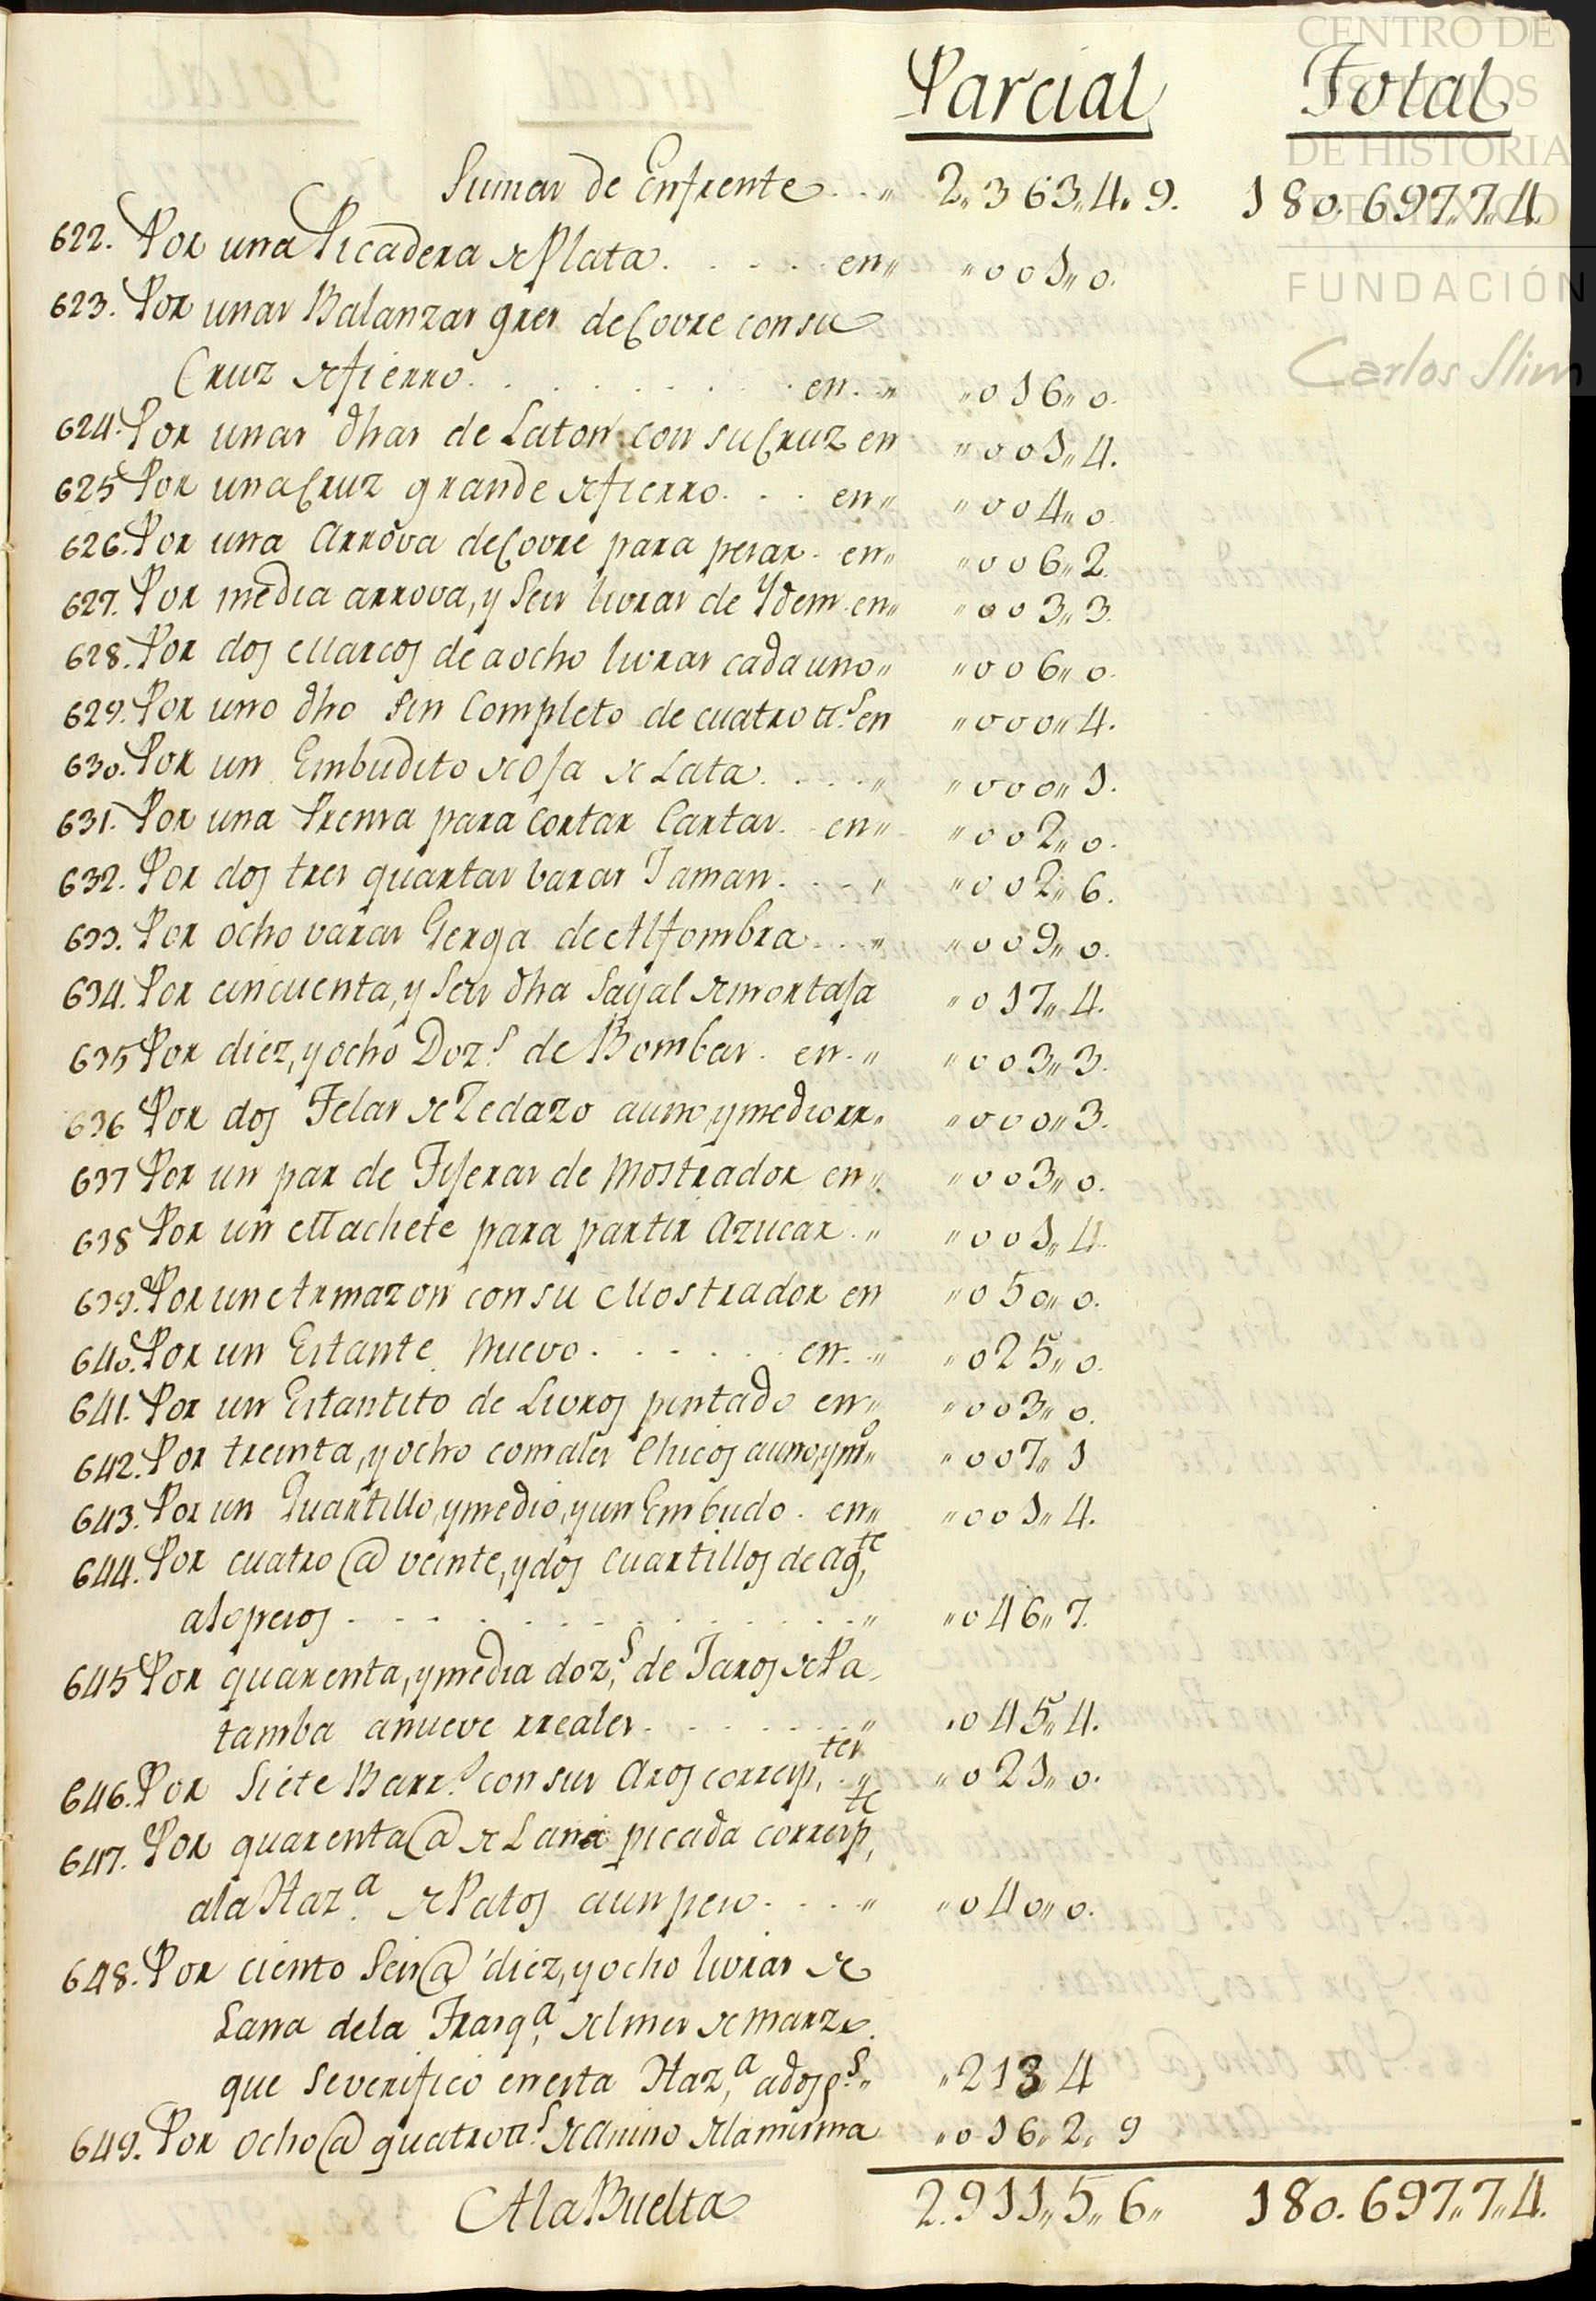 CENTRO DE
ESTUDIOS
DE HISTORIA
DE MÉXICO
FUNDACIÓN
Carlos Slim
Parcial Total
Sumas de Enfrente .. „ 2„363„4„9. 180.697„7„4.
622. Por una Picadera de Plata . . . . en„ „001„0.
623. Por unas Balanzas gres de Covre con su
Cruz de fierro . . . . . . . en . „ „016„0.
624. Por unas dhas de Laton con su Cruz en „001„4.
625 Por una Cruz grande de fierro . . . en„ „004„0.
626. Por una Arrova de Covre para pesar . en„ „006„2.
627. Por media arrova, y Seis livras de Ydem . en„ „003„3.
628. Por dos Marcos de a ocho livras cada uno „ „006„0.
629. Por uno dho Sin Completo de cuatro tt.s en „000„4.
630. Por un Embudito de Oja de Lata . . . . „ „000„1.
631. Por una Prensa para Cortar Cartas . en„ „002„0.
632. Por dos tres quartas baras Jaman . . . „ „002„6.
633. Por ocho varas Gerga de Alfombra . . „ „009„0.
634. Por cincuenta, y Seis dha Sayal de mortaja „017„4.
635 Por diez, y ocho Doz.s de Bombas . en . „ „003„3.
636 Por dos Telas de Zedazo a uno, y medio rr. „000„3.
637 Por un par de Tijeras de Mostrador en„ „003„0.
638 Por un Machete para partir Azucar . „ „001„4.
639. Por un Armazon con su Mostrador en „050„0.
640. Por un Estante Nuevo . . . . . en . „ „025„0.
641. Por un Estantito de Livros pintado en„ „003„0.
642. Por treinta, y ocho comales Chicos a uno, y m.o „ „007„1
643. Por un Quartillo, y medio, y un Embudo . en„ „001„4.
644. Por cuatro @ veinte, y dos Cuartillos de Ag.te
a 10 pesos . . . . . . . . . . „ „046„7.
645 Por quarenta, y media doz.s de Jaros de Pa-
tamba a nueve rreales . . . . . „ „045„4.
646. Por Siete Barr.s con sus Aros corresp.tes . „ „021„0.
647. Por quarenta @ de Lana picada corresp.te
a la Haz.a de Patos a un peso . . . . „ „040„0.
648. Por ciento Seis @ diez, y ocho livras de
Lana de la Trasq.a del mes de Marzo.
que se verificó en esta Haz.a a dos p.s „ „213 4
649. Por Ocho @ quatro tt.s de Anino de la misma „016„2„9
A la Buelta 2.911„5„6„ 180.697„7„4.